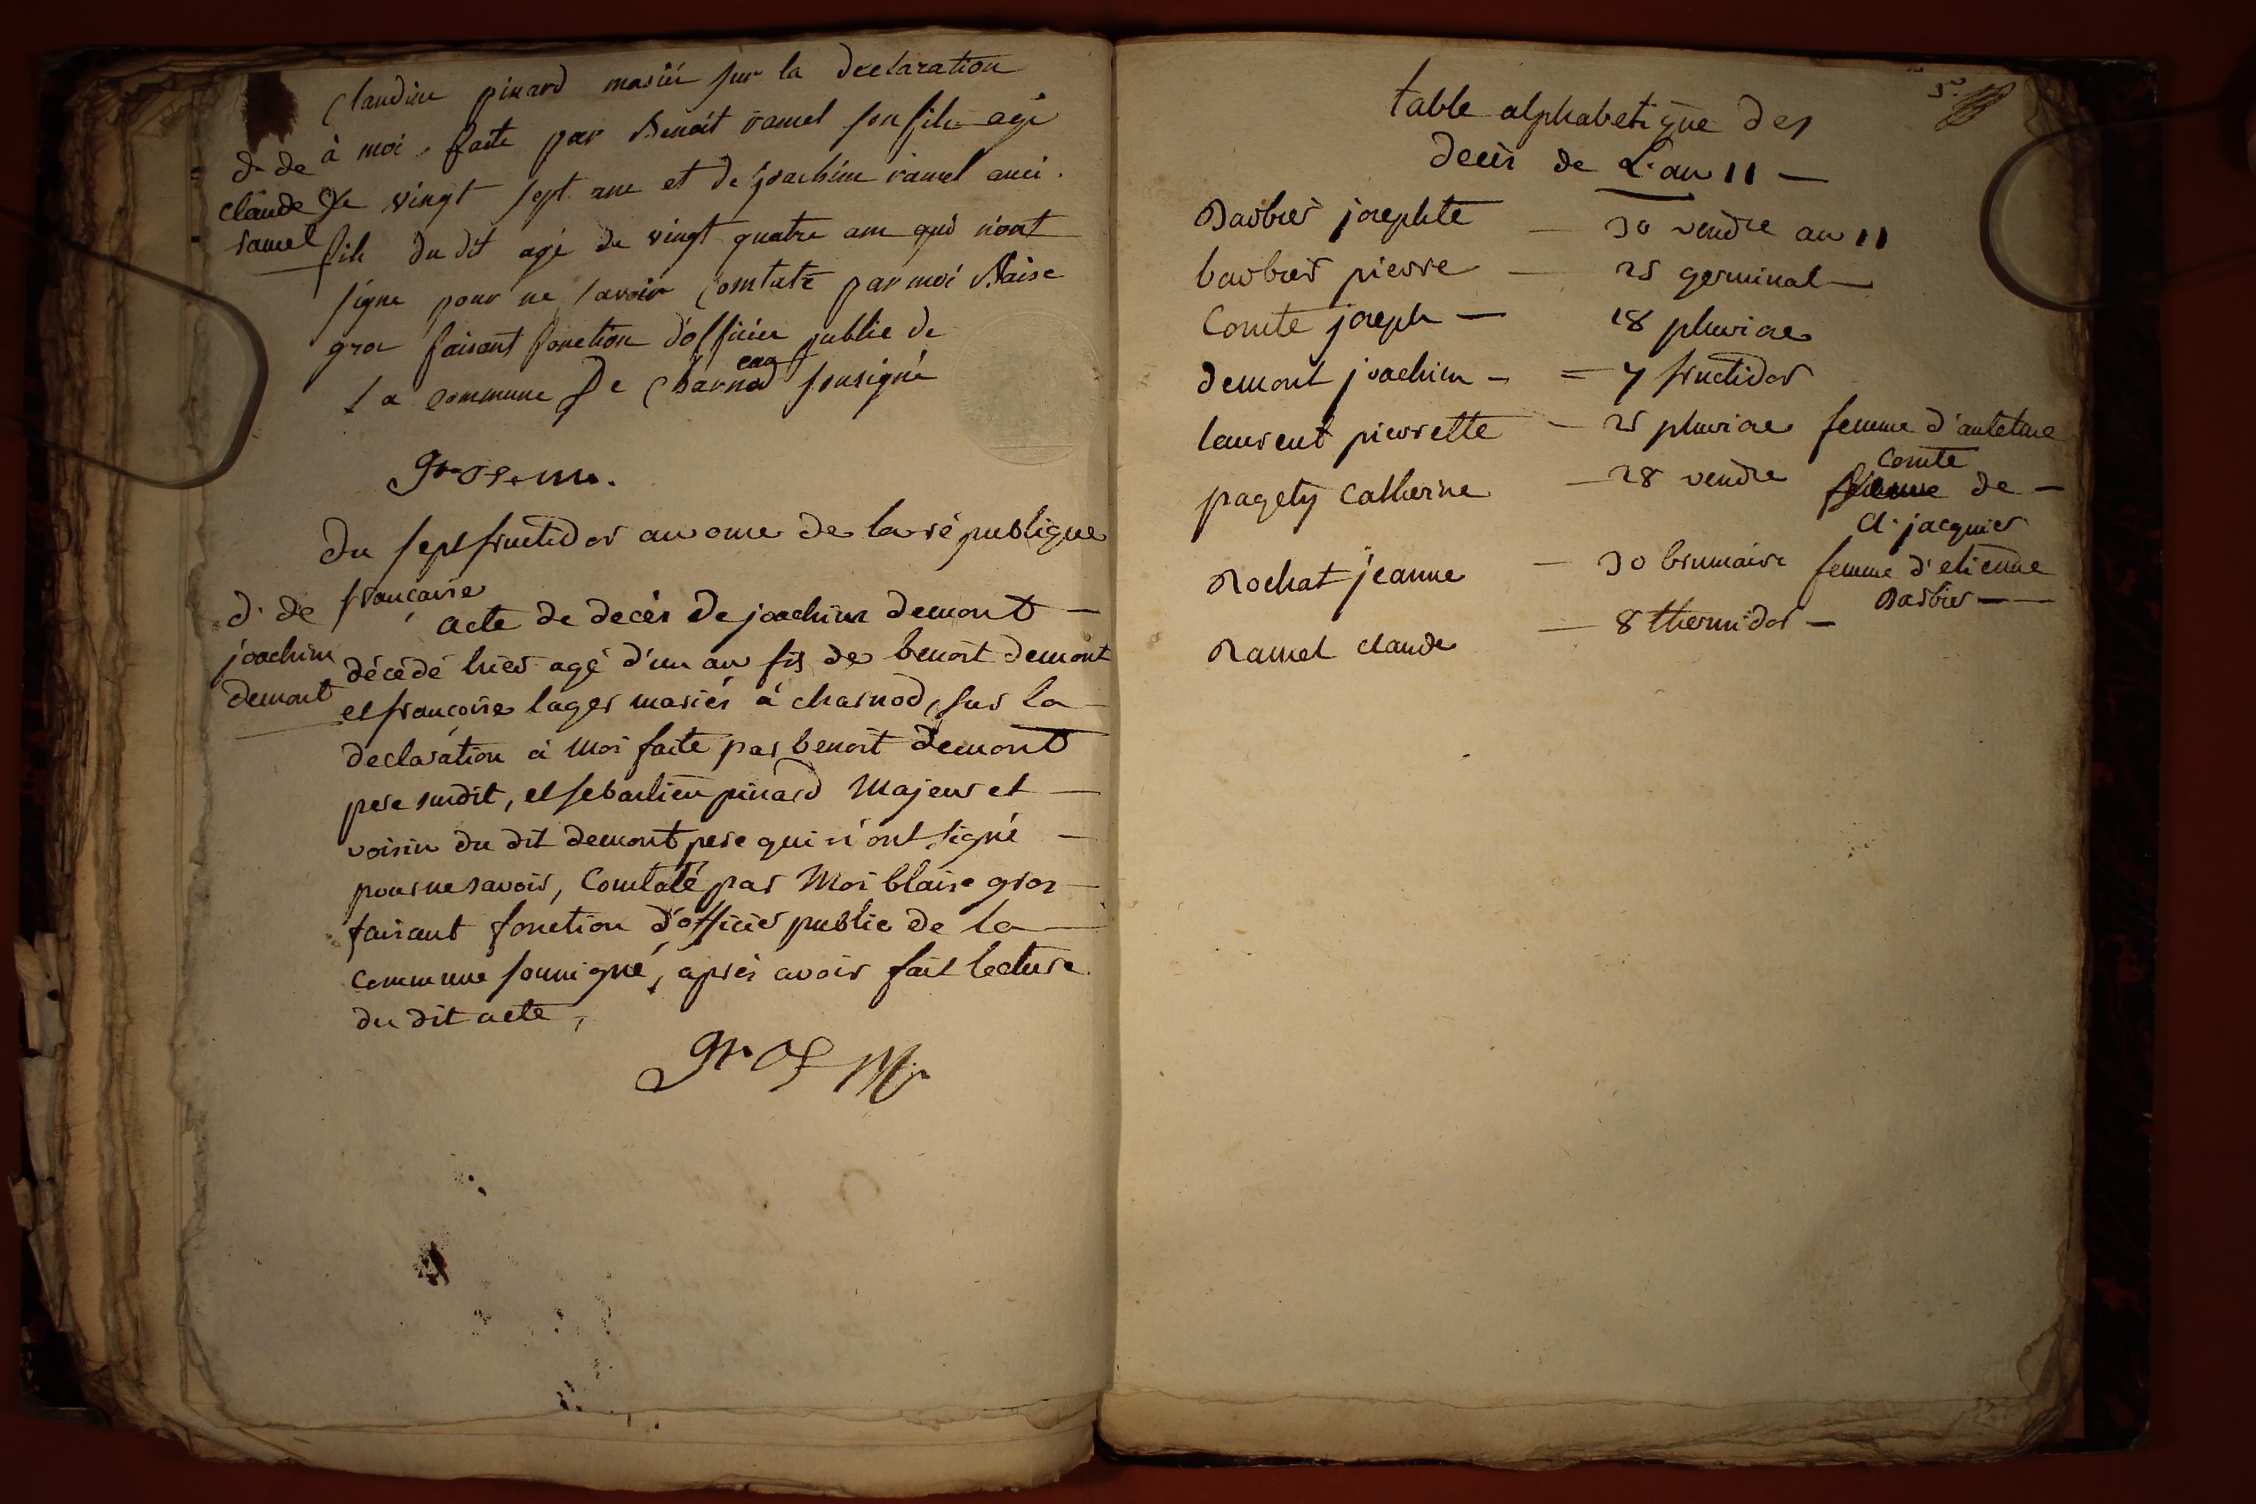 Claudine pinard mariée sur la declaration
à moi faite par Benoit ramel son fils agé
d. de
claude
ramel
de vingt sept ans et de joachim ramel aussi
fils du dit agé de vingt quatre ans qui n'ont
signe pour ne savoir Constaté par moi Blaise
gros faisant fonction d'officier public de
La commune De Charnod sousigné
gros m.
du sept fructidor an onze de la république
francaise
d. de
joachim
demont
acte de décès de joachim demont —
décédé hier agé d'un an fils de benoit demont
et francoise lager mariés à charnod, sur la —
declaration à Moi faite par benoit demont
pere susdit, et sebastien pinard Majeur et —
voisin du dit demont pere qui n'ont signé —
pour ne savoir, Constaté par Moi blaise gros —
faisant fonction d'officier public de la —
commune soussigné, après avoir fait lecture
du dit acte,
gros M
5e
table alphabetique des
decès de L'an 11 —
Barbier josephte — 30 vendre an 11
barbier pierre — 25 germinal —
Comte joseph — 18 pluviose
demont joachim — = 7 fructidor
laurent pierrette — 25 pluviose femme d'antelme
Comte
pagety Catherine — 28 vendre femme de —
Cl. jacquier
Rochat jeanne — 30 brumaire femme d'etienne
Barbier —
Ramel claude — 8 thermidor —